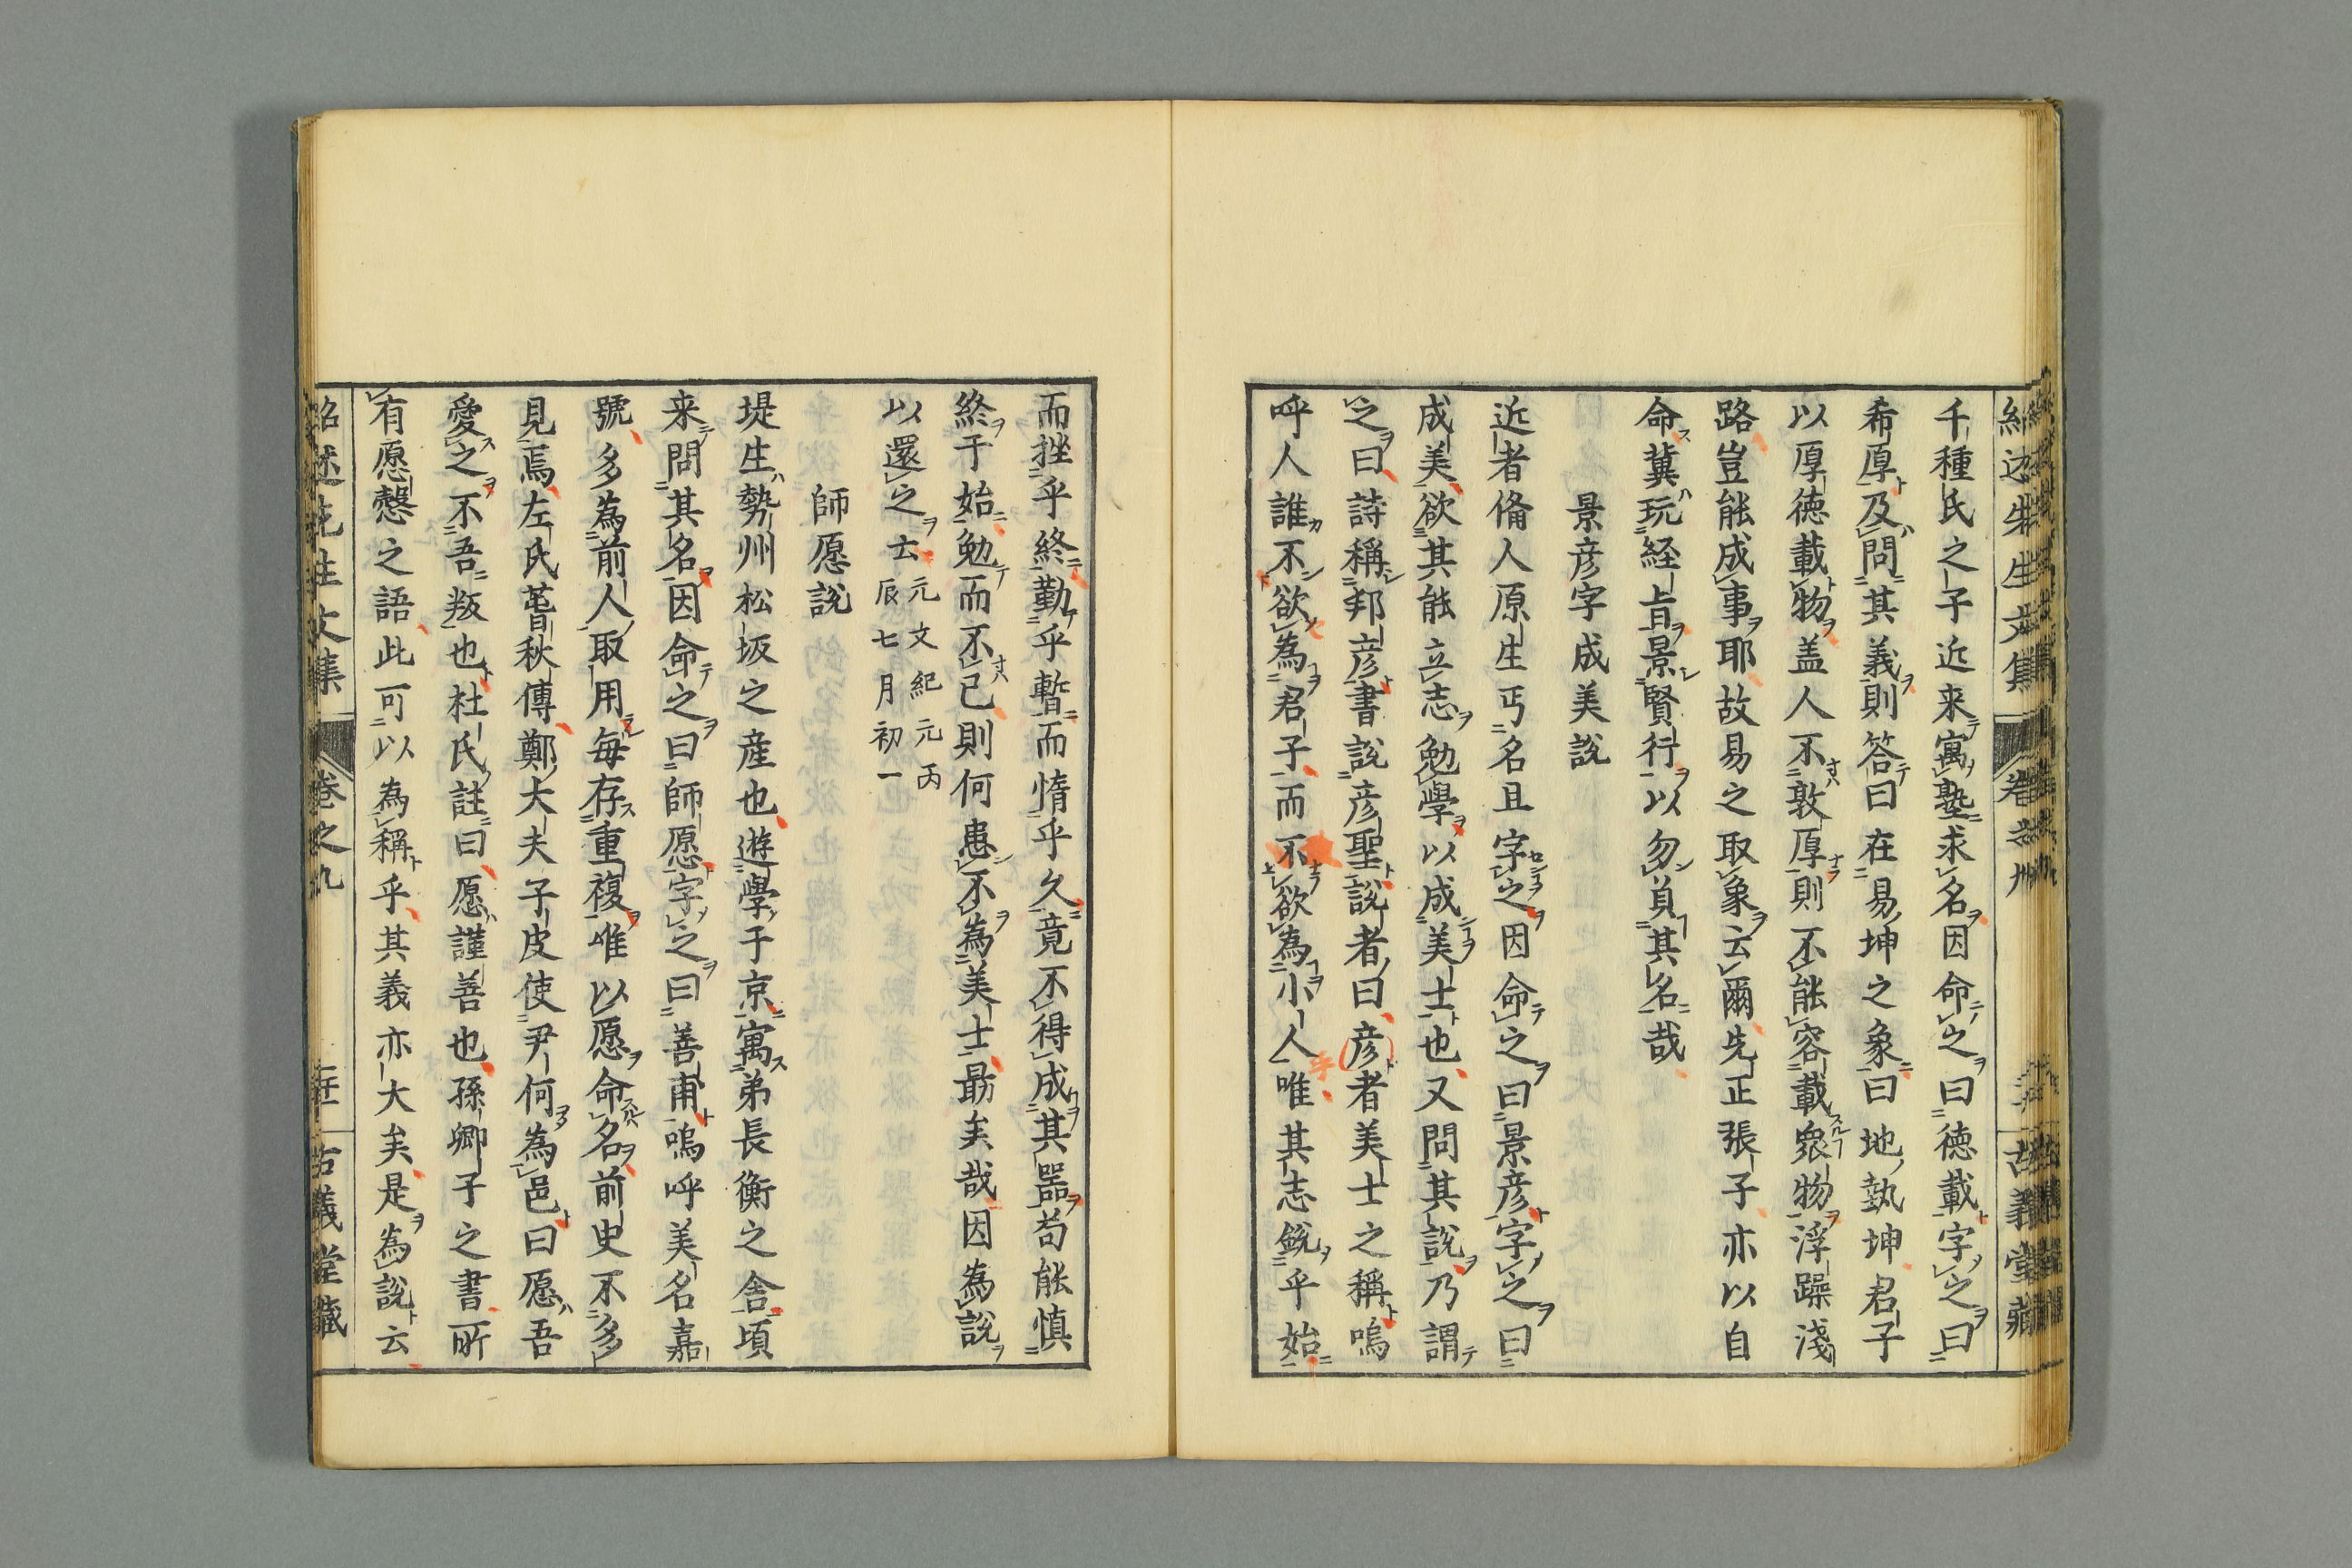 千種氏之子近来寓塾求名因命之曰德載字之曰
希厚及問其義則答曰在易坤之象曰地埶坤君子
以厚德載物盖人不敦厚則不能容載衆物浮躁淺
路豈能成事耶故易之取象云爾先正張子亦以自
命冀玩経旨景賢行以勿負其名哉
景彦字成美說
近者俻人原生丐名且字之因命之曰景彦字之曰
成美欲其能立志勉學以成美士也又問其說乃謂
之曰詩稱邦彦書說彦聖說者曰彦者美士之稱嗚
呼人誰不欲為君子而不欲為小人唯其志銳乎始
而挫乎終勤乎暫而惰乎久竟不得成其器苟能慎
終于始勉而不已則何患不為美士最矣哉因為說
以還之云
元文紀元丙
辰七月初一
師愿說
堤生勢州松坂之産也遊學于京寓弟長衡之舎頃
来問其名因命之曰師愿字之曰善甫嗚呼美名嘉
號多為前人取用每存重複唯以愿命名前史不多
見焉左氏春秋傳鄭大夫子皮使尹何為邑曰愿吾
愛之不吾叛也杜氏註曰愿謹善也孫卿子之書所
有愿慤之語此可以為稱乎其義亦大矣是為說云
卷之九
古義堂藏